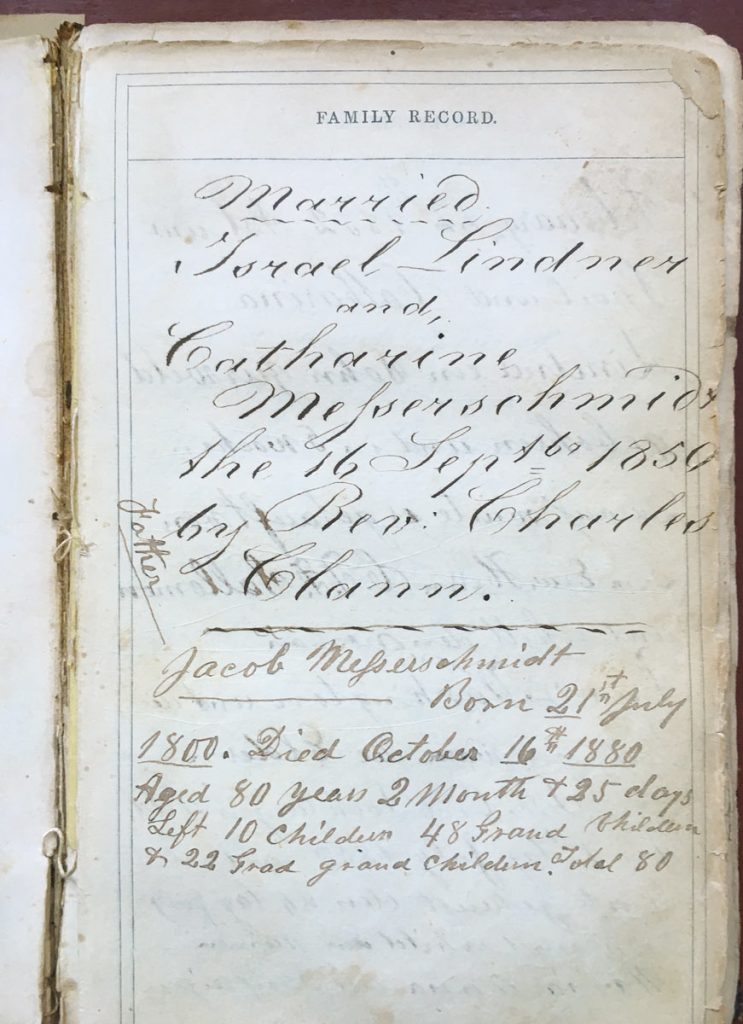 FAMILY RECORD.
Married
Israel Lindner
and,
Catharine
Messerschmidt
the 16 Septbr 1850
by Rev: Charles
Clann.
Father
Jacob Messerschmidt
Born 21st July
1800. Died October 16th 1880
Aged 80 years 2 Month & 25 days
Left 10 Children 48 Grand Children
& 22 Grad grand Children. Total 80